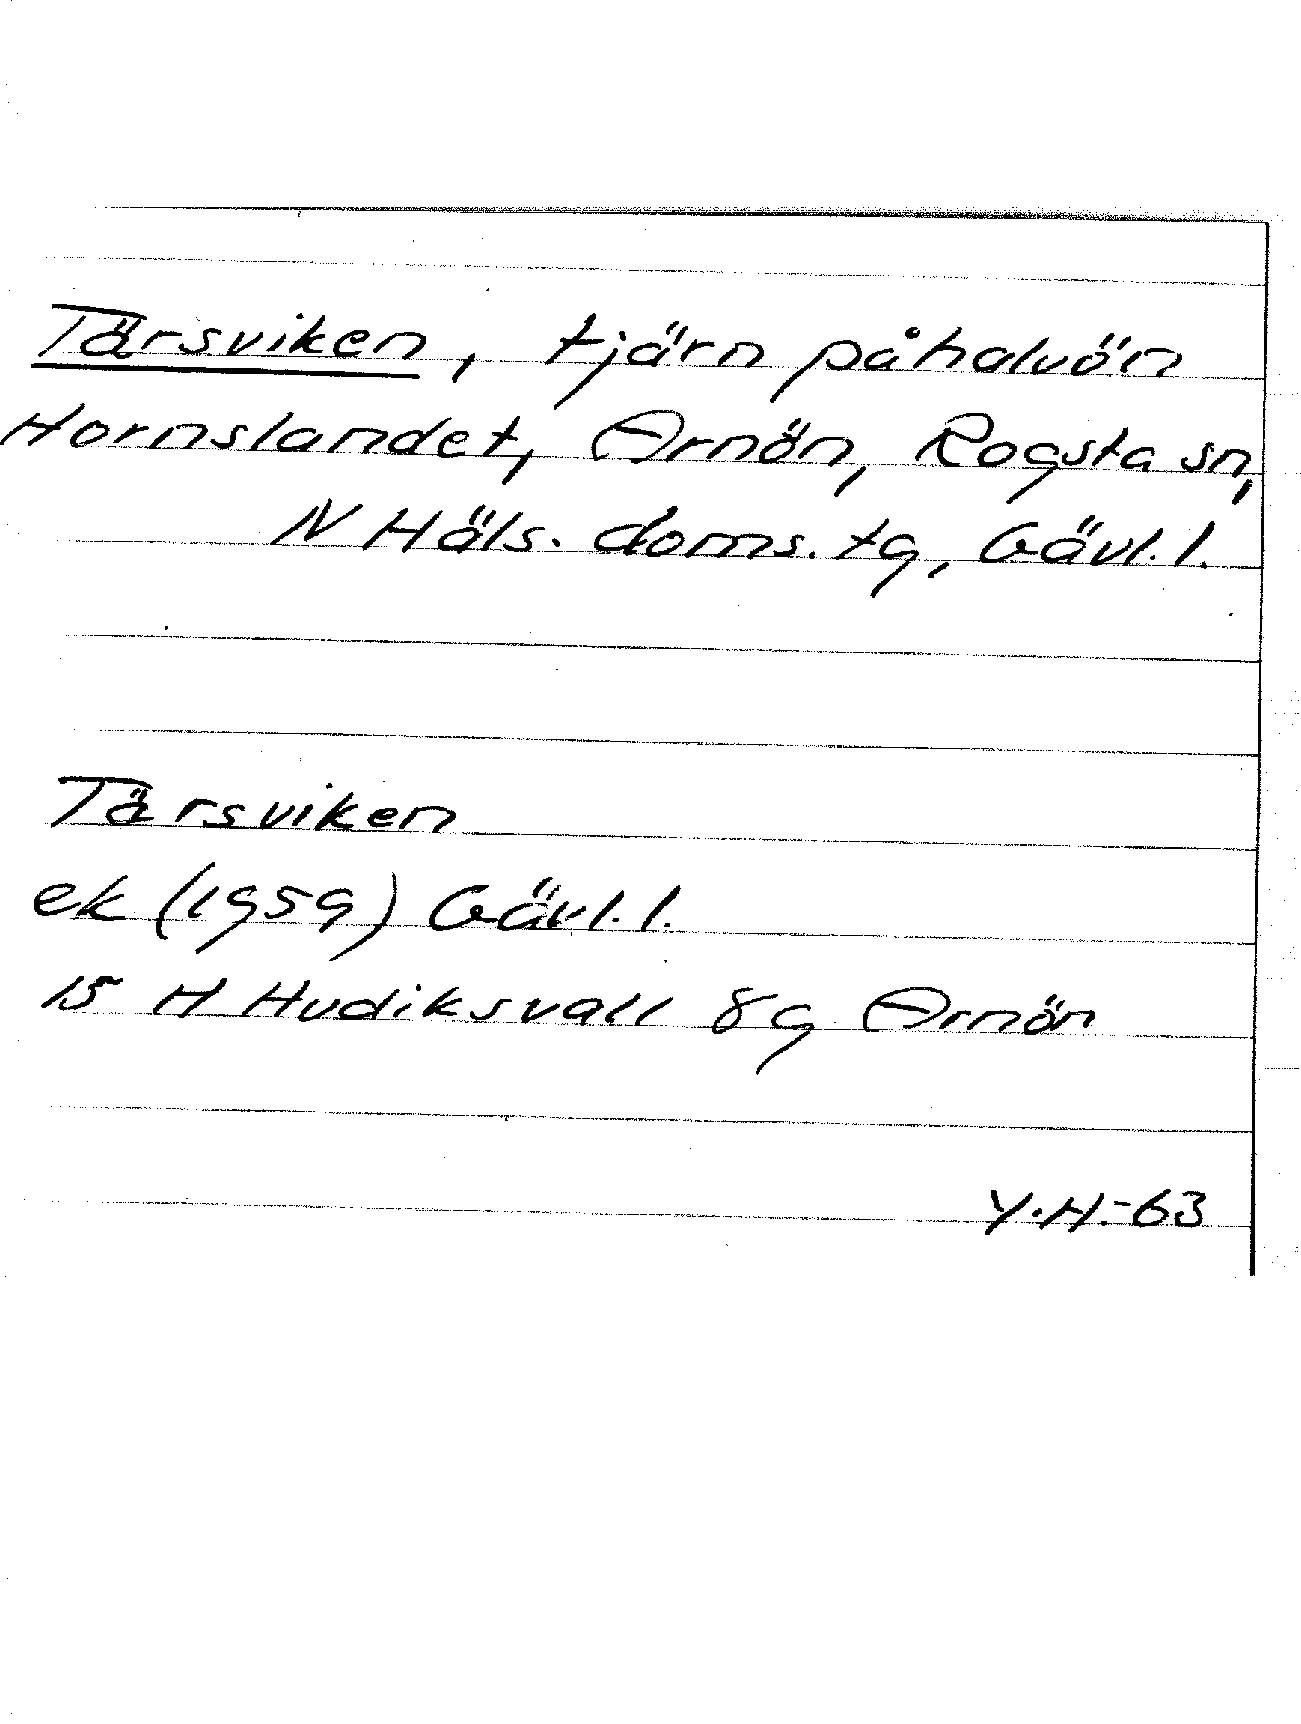 Tärsviken, tjärn på halvön
Hornslandet, Arnön, Rogsta sn,
N Häls. doms. tg, Gävl. l.
Tärsviken
ek (1959) Gävl. l.
15 H Hudiksvall 8g Arnön
Y.H.-63